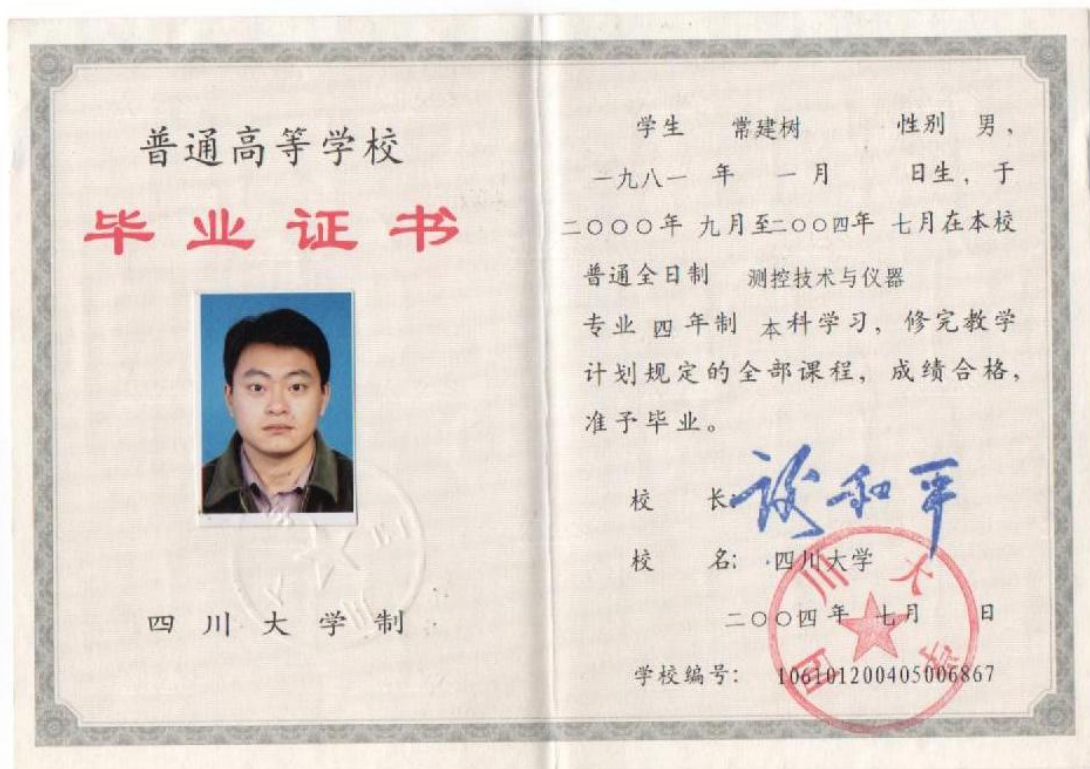 普通高等学校
毕业证书
四川大学制
学生 常建树 性别 男，
一九八一 年 一月 日生，于
二〇〇〇年 九月至二〇〇四年 七月在本校
普通全日制 测控技术与仪器
专业 四 年制 本科学习，修完教学
计划规定的全部课程，成绩合格，
准予毕业。
校 长 谢和平
校 名：四川大学
二〇〇四 年 七月 日
学校编号： 106101200405006867
四川大学